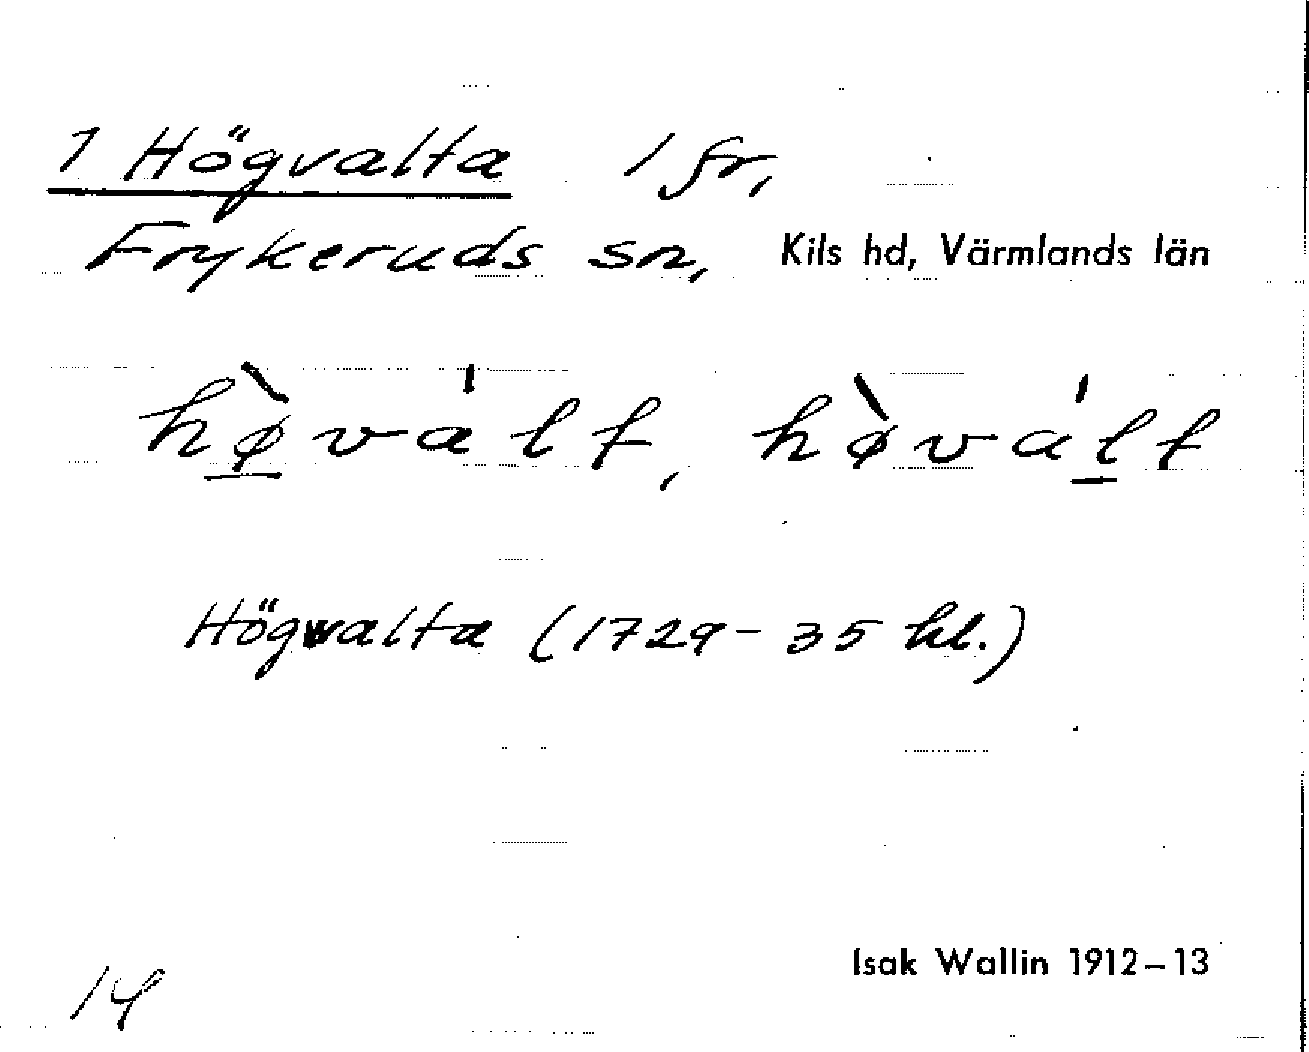 1 Högvalta 1 fr,
Frykeruds sn, Kils hd, Värmlands län
hø̀vált, hø̀vált
Högvalta (1729-35 hl.)
Isak Wallin 1912-13
14